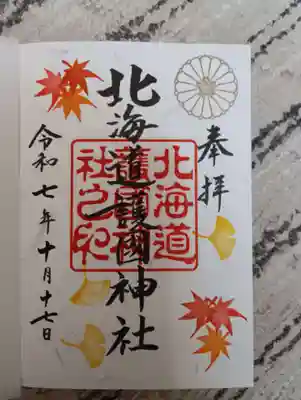 奉拝
北海道護國神社
北海道
護國神
社之印
令和七年十月十七日